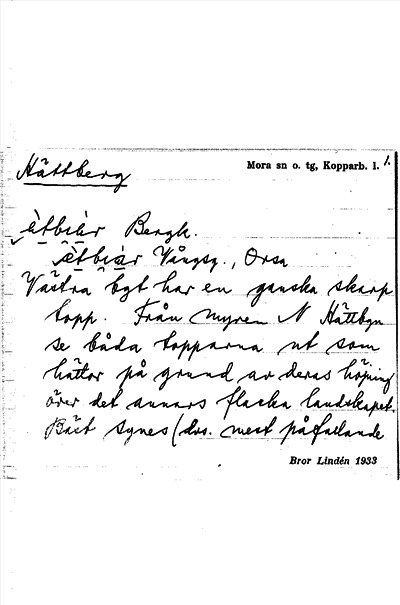 Hättberg
Mora sn o. tg, Kopparb. l. 1.
ètbiàr Bergk.
ètbiàr Vångsg., Orsa
Västra bgt har en ganska skarp
topp. Från myren N Hättbgn
se båda topparna ut som
hättor på grund av deras höjning
över det annars flacka landskapet.
Bäst synes (dvs. mest påfallande
Bror Lindén 1933